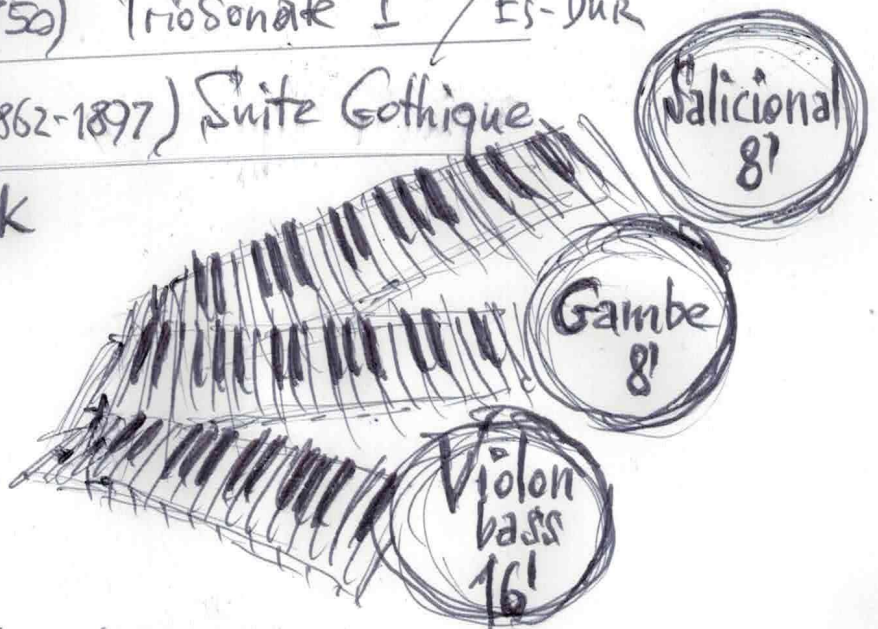 50) TrioSonate I / Es-DUR
862-1897) Suite Gothique
K
Salicional
8'
Gambe
8'
Violon
bass
16'